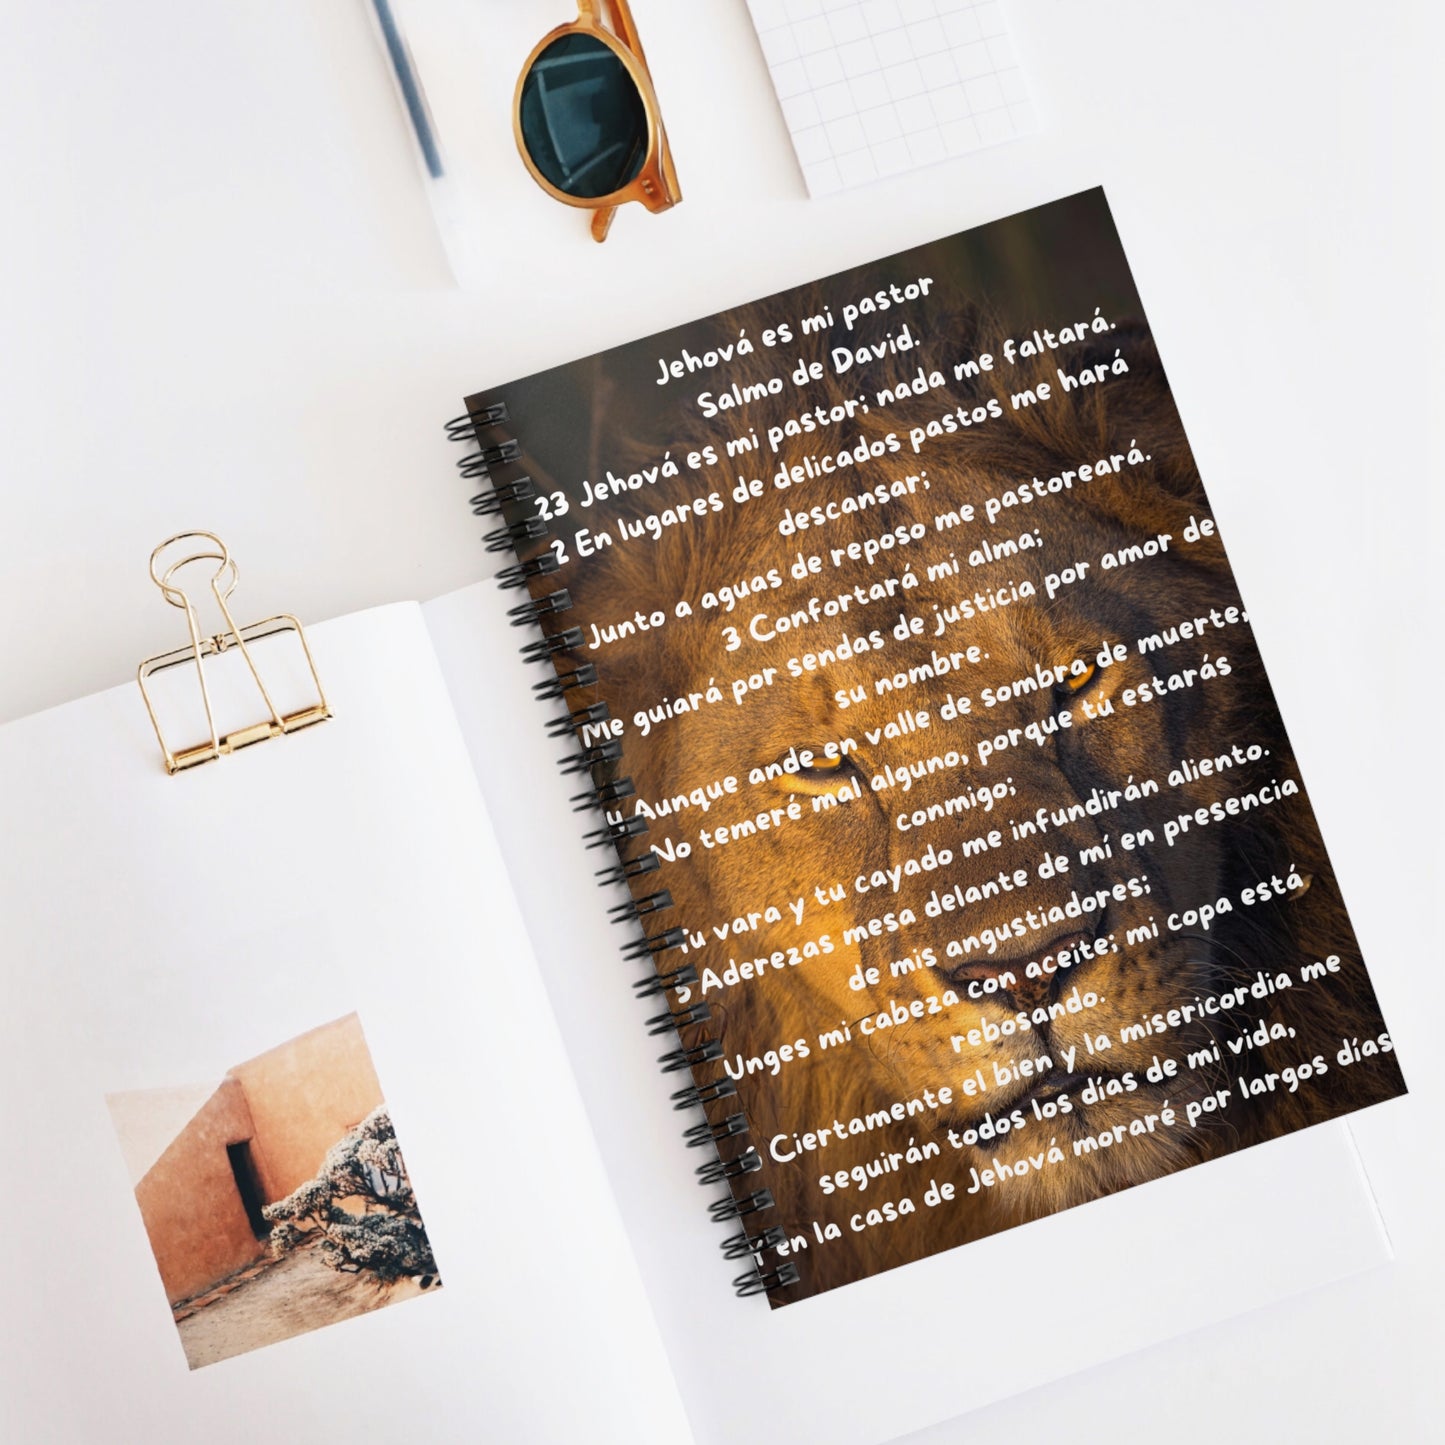 Jehová es mi pastor
Salmo de David.
23 Jehová es mi pastor; nada me faltará.
2 En lugares de delicados pastos me hará
descansar;
Junto a aguas de reposo me pastoreará.
3 Confortará mi alma;
Me guiará por sendas de justicia por amor de
su nombre.
4 Aunque ande en valle de sombra de muerte,
No temeré mal alguno, porque tú estarás
conmigo;
Tu vara y tu cayado me infundirán aliento.
5 Aderezas mesa delante de mí en presencia
de mis angustiadores;
Unges mi cabeza con aceite; mi copa está
rebosando.
6 Ciertamente el bien y la misericordia me
seguirán todos los días de mi vida,
Y en la casa de Jehová moraré por largos días